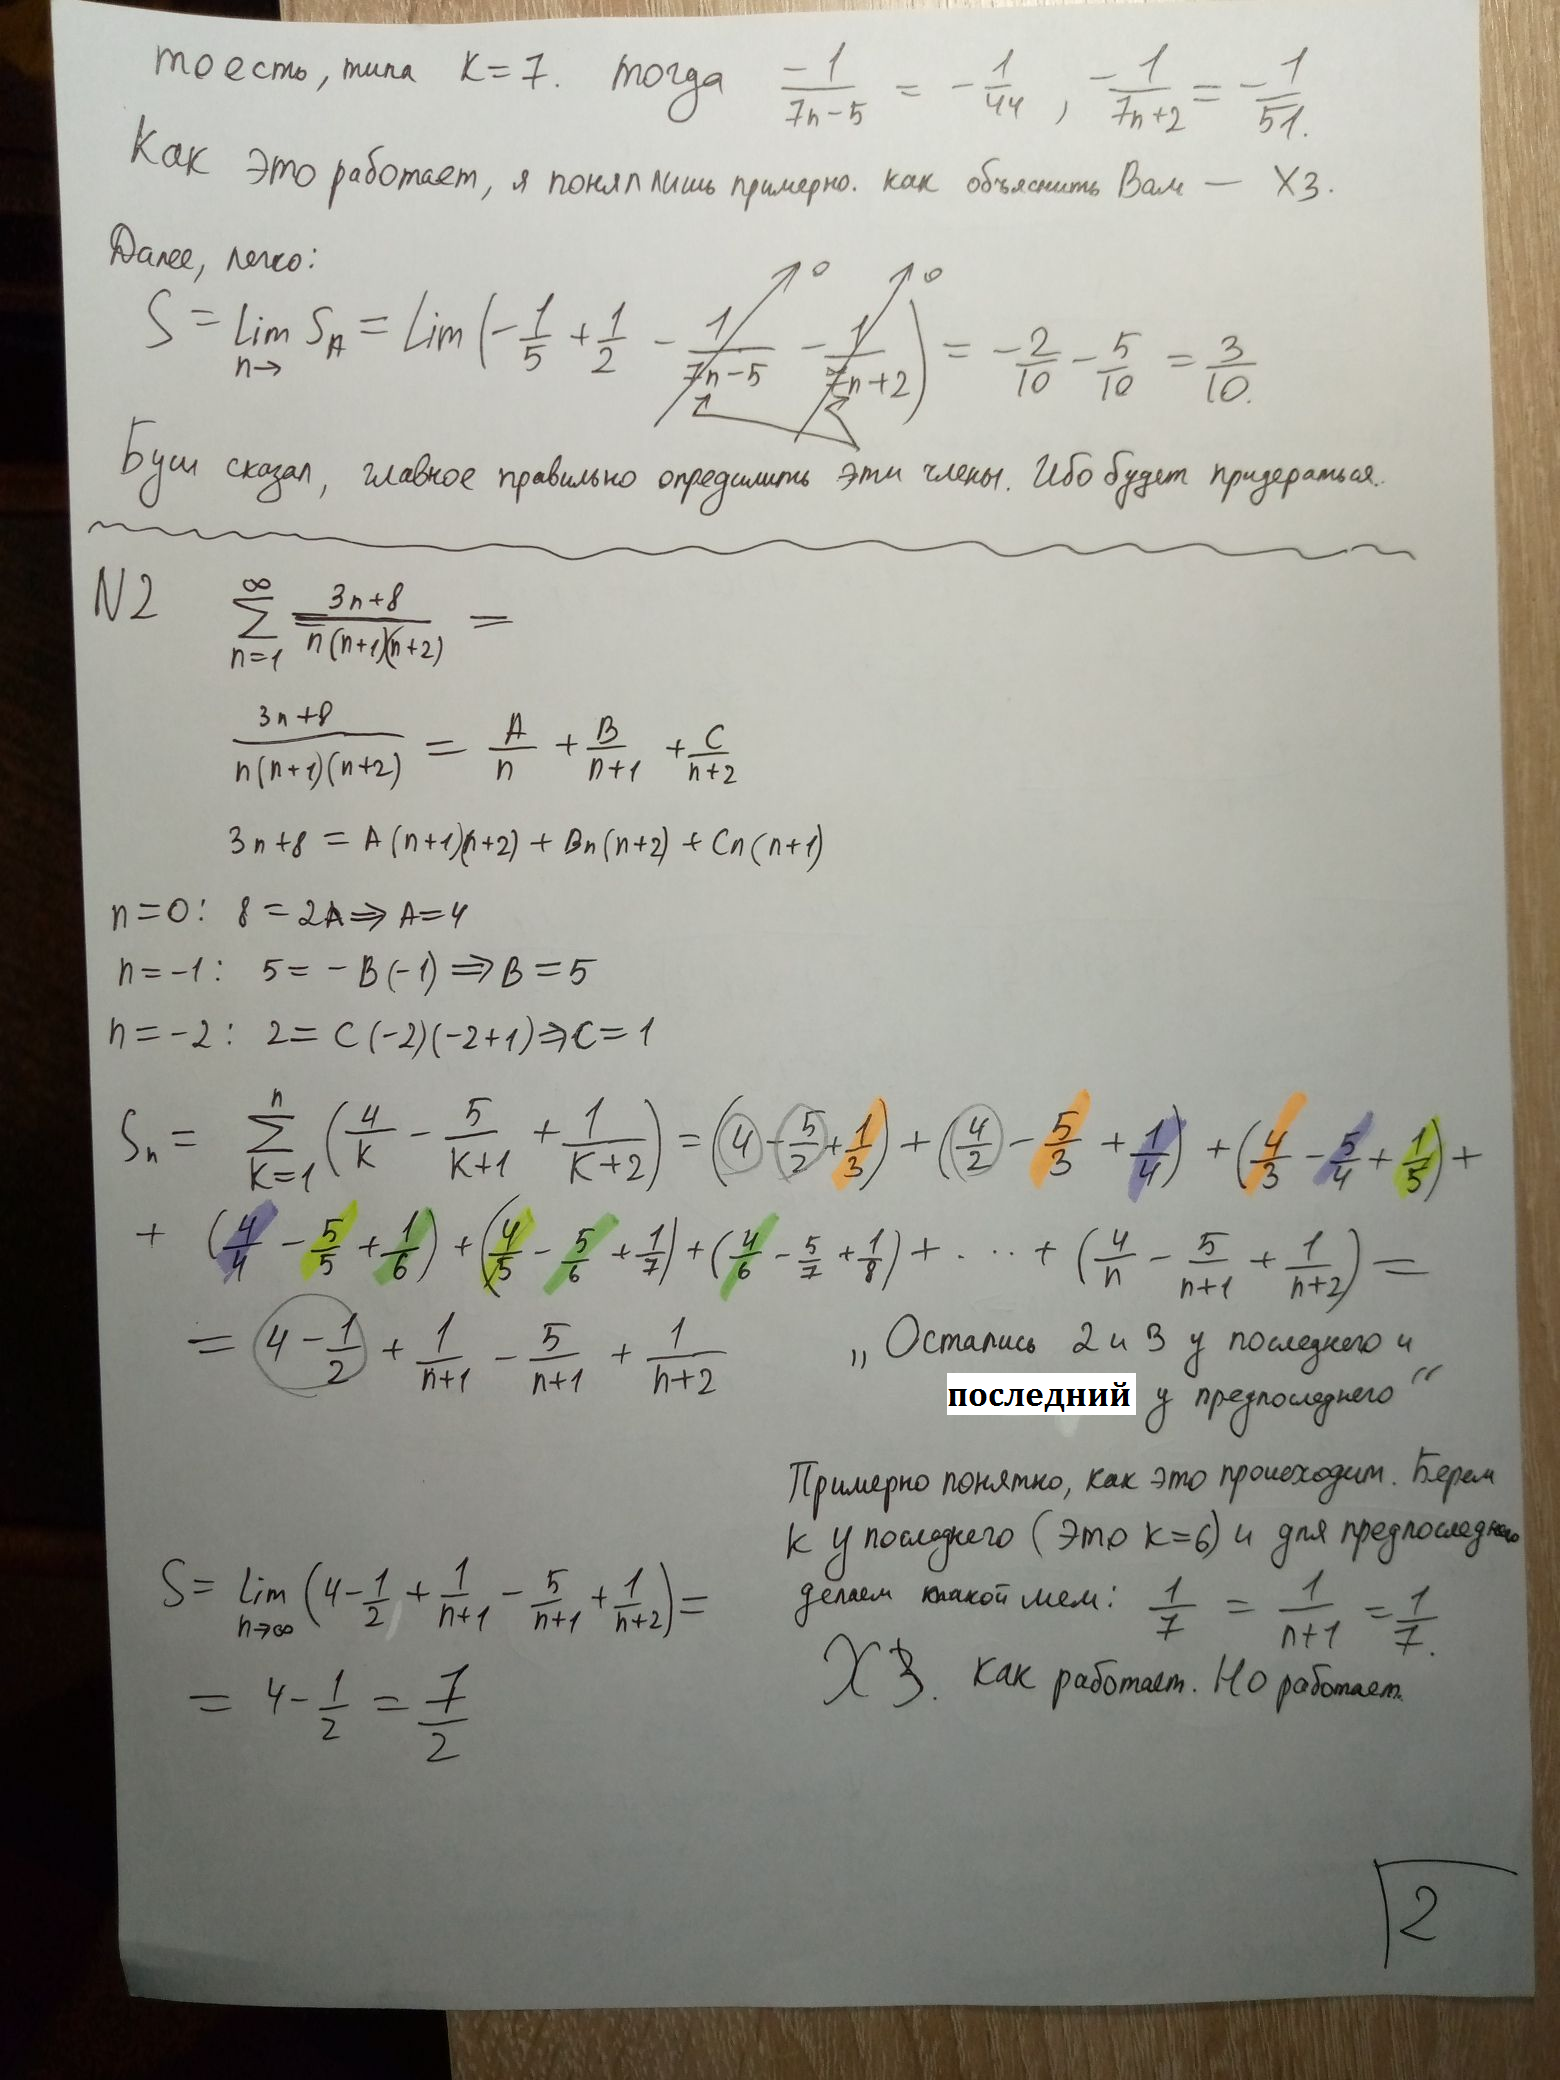 то есть, типа K=7. тогда -1/(7n-5) = -1/44, -1/(7n+2) = -1/51.
Как это работает, я понял лишь примерно. как объяснить Вам — ХЗ.
Далее, легко:
S = lim n→ S_n = Lim (-1/5 + 1/2 - 1/(7n-5) →0 - 1/(7n+2) →0) = -2/10 - 5/10 = 3/10.
Буш сказал, главное правильно определить эти члены. Ибо будет придераться.
N2 ∞ ∑ n=1 (3n+8)/(n(n+1)(n+2)) =
(3n+8)/(n(n+1)(n+2)) = A/n + B/(n+1) + C/(n+2)
3n+8 = A(n+1)(n+2) + Bn(n+2) + Cn(n+1)
n=0: 8=2A ⇒ A=4
n=-1: 5=-B(-1) ⇒ B=5
n=-2: 2=C(-2)(-2+1) ⇒ C=1
S_n = n ∑ K=1 (4/K - 5/(K+1) + 1/(K+2)) = (4 - 5/2 + 1/3) + (4/2 - 5/3 + 1/4) + (4/3 - 5/4 + 1/5) +
+ (4/4 - 5/5 + 1/6) + (4/5 - 5/6 + 1/7) + (4/6 - 5/7 + 1/8) + ... + (4/n - 5/(n+1) + 1/(n+2)) =
= 4 - 1/2 + 1/(n+1) - 5/(n+1) + 1/(n+2)
„Остались 2 и 3 у последнего и
последний у предпоследнего“
Примерно понятно, как это происходит. Берем
K у последнего (это K=6) и для предпоследнего
делаем такой мем: 1/7 = 1/(n+1) = 1/7.
ХЗ. как работает. Но работает.
S = lim n→∞ (4 - 1/2 + 1/(n+1) - 5/(n+1) + 1/(n+2)) =
= 4 - 1/2 = 7/2
2